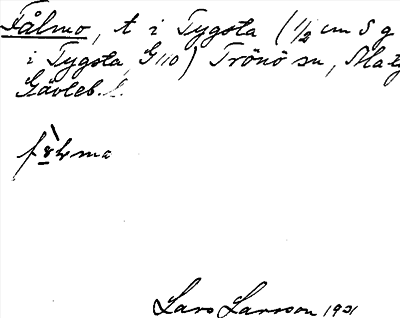 Fålmo, t i Tygsta (1/2 cm S g
i Tygsta, G 110) Trönö sn,
Gävleb. l.
Lars Larsson 1921